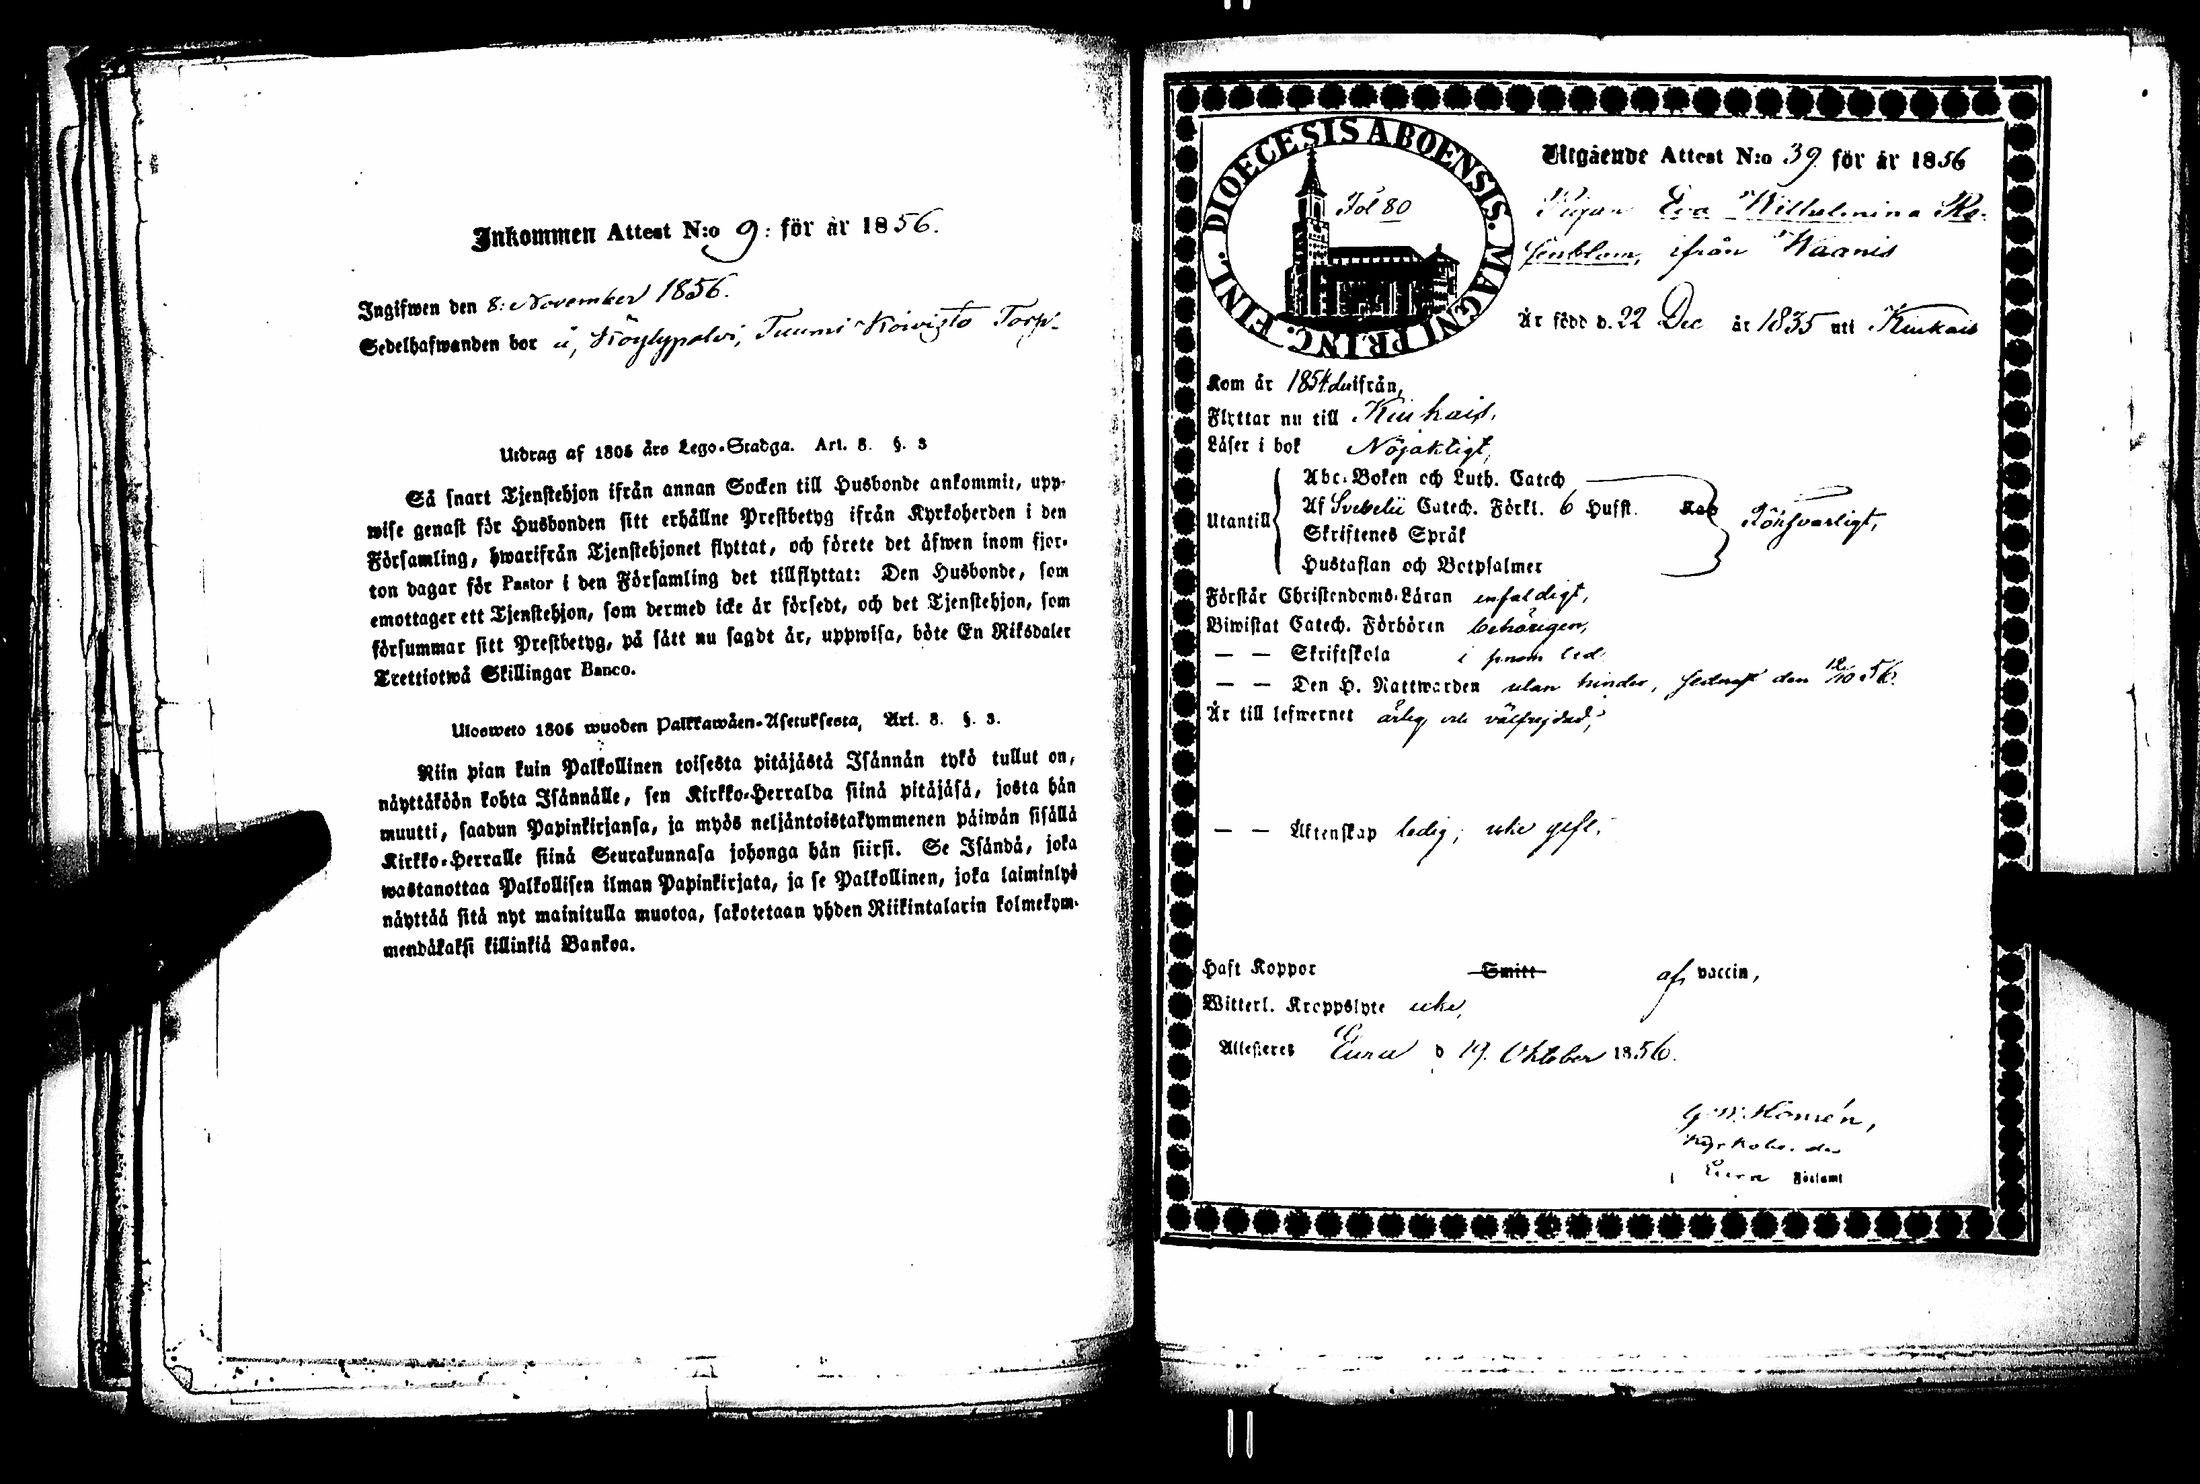 Inkommen Attest N:o 9: för år 1856.
Ingifwen den 8: November 1856.
Sedelhafwanden bor å, Köylypolvi, Tuumi Koivisto Torp.
Utdrag af 1805 års Lego-Stadga. Art. 8. §. 3
Så snart Tjenstehjon ifrån annan Socken till Husbonde ankommit, upp-
wise genast för Husbonden sitt erhållne Prestbetyg ifrån Kyrkoherden i den
Församling, hwarifrån Tjenstehjonet flyttat, och förete det äfwen inom fjor-
ton dagar för Pastor i den Församling det tillflyttat: Den Husbonde, som
emottager ett Tjenstehjon, som dermed icke är försedt, och det Tjenstehjon, som
försummar sitt Prestbetyg, på sätt nu sagdt är, uppwisa, böte En Riksdaler
Trettiotwå Skillingar Banco.
Ulosweto 1805 wuoden Palkkawäen-Asetuksesta, Art. 8. §. 3.
Niin pian kuin Palkollinen toisesta pitäjästä Isännän tykö tullut on,
näyttäköön kohta Isännälle, sen Kirkko-Herralda siinä pitäjäsä, josta hän
muutti, saadun Papinkirjansa, ja myös neljäntoistakymmenen päiwän sisällä
Kirkko-Herralle siinä Seurakunnasa johonga hän siirsi. Se Isändä, joka
wastanottaa Palkollisen ilman Papinkirjata, ja se Palkollinen, joka laiminlyö
näyttää sitä nyt mainitulla muotoa, sakotetaan yhden Riikintalarin kolmekym-
mendäkaksi killinkiä Bankoa.
DIOECESIS ABOENSIS. MAGNI PRINC. FINL.
Fol 80
Utgående Attest N:o 39 för år 1856
Pigan Eva Wilhelmina Ro-
senblom, ifrån Waanis
Är född d. 22 Dec år 1835 uti Kiukais
Kom år 1854 du ifrån,
Flyttar nu till Kiukais,
Läser i bok Nöjaktigt,
Utantill
Abc-Boken och Luth. Catech
Af Svebelii Catech. Förkl. 6 Hufst.
Skriftenes Språk
Hustaflan och Botpsalmer
Förswarligt,
Förstår Christendoms-Läran enfaldigt,
Biwistat Catech. Förhören behörigen,
— — Skriftskola i sinom tid
— — Den H. Nattwarden utan hinder, sednast den 12/10 56.
Är till lefwernet ärlig och välfrejdad,
— — Äktenskap ledig, icke gift,
Haft Koppor Smitt af vaccin,
Witterl. Kroppslyte icke,
Attesteres Eura d 19. Oktober 1856.
G. W. Homén,
Kyrkoherde
i Eura Församl